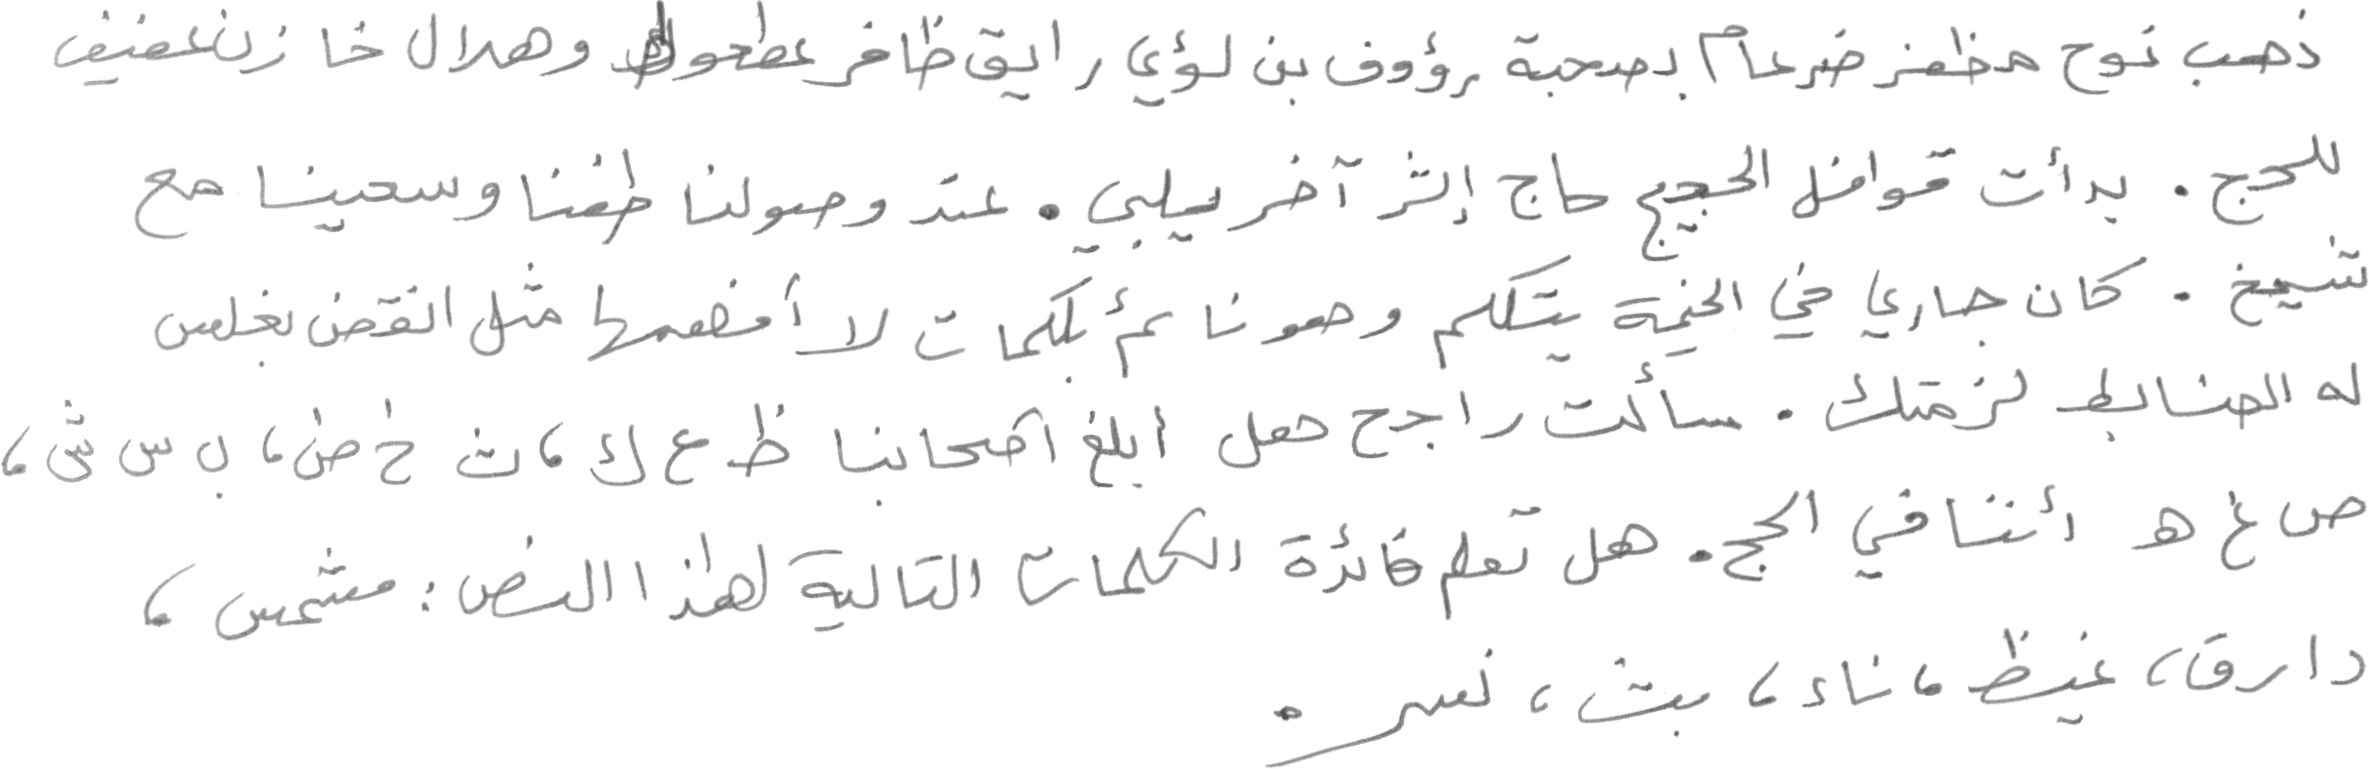 ذهب نوح مظفر ضرغام بصحبة رؤوف بن لؤي رايق ظافر عطعوط وهلال خازن عفيف
للحج . بدأت قوافل الحجيج حاج إثر آخر يلبي . عند وصولنا طفنا وسعينا مع
شيخ . كان جاري في الخيمة يتكلم وهو نائم بكلمات لا أفهمها مثل انقض بغلس
له الضابط لزمتك . سألت راجح هل أبلغ أصحابنا ظ ع ك ، ث خ ض ، ب س ش ،
ص غ ه أننا في الحج . هل تعلم فائدة الكلمات التالية لهذا النص : مشمس ،
دارق ، غيظ ، ناء ، بث ، نسر .